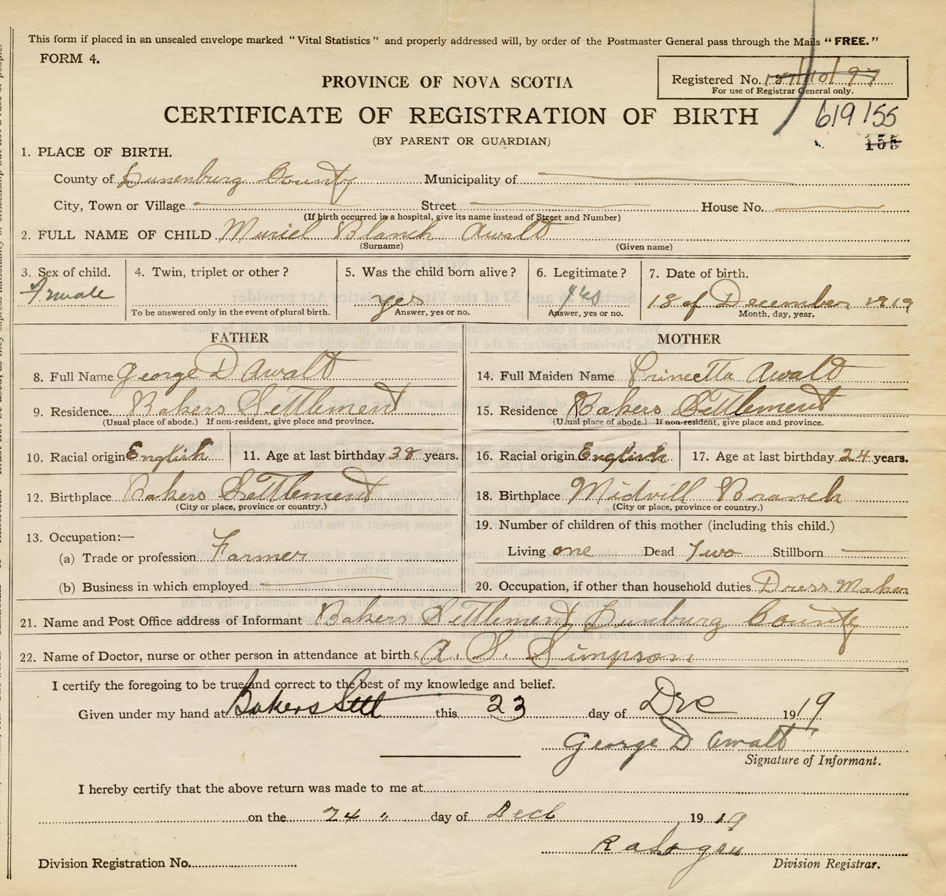 This form if placed in an unsealed envelope marked "Vital Statistics" and properly addressed will, by order of the Postmaster General pass through the Mails "FREE."
FORM 4.
PROVINCE OF NOVA SCOTIA
Registered No.
For use of Registrar General only.
CERTIFICATE OF REGISTRATION OF BIRTH
619155
155
(BY PARENT OR GUARDIAN)
1. PLACE OF BIRTH.
County of Lunenburg County Municipality of
City, Town or Village Street House No.
(If birth occurred in a hospital, give its name instead of Street and Number)
2. FULL NAME OF CHILD Muriel Blanch Awalt
(Surname) (Given name)
3. Sex of child. 4. Twin, triplet or other? 5. Was the child born alive? 6. Legitimate? 7. Date of birth.
Female yes yes 18 of December 1919
To be answered only in the event of plural birth. Answer, yes or no. Answer, yes or no. Month, day, year.
FATHER MOTHER
8. Full Name George D Awalt 14. Full Maiden Name Awalt
9. Residence. Bakers Settlement 15. Residence Bakers Settlement
(Usual place of abode.) If non-resident, give place and province. (Usual place of abode.) If non-resident, give place and province.
10. Racial origin English 11. Age at last birthday 38 years. 16. Racial origin English 17. Age at last birthday 24 years.
12. Birthplace Bakers Settlement 18. Birthplace Midvill Branch
(City or place, province or country.) (City or place, province or country.)
13. Occupation:— 19. Number of children of this mother (including this child.)
(a) Trade or profession Farmer Living one Dead Two Stillborn
(b) Business in which employed 20. Occupation, if other than household duties Dress Maker
21. Name and Post Office address of Informant Bakers Settlement Lunburg County
22. Name of Doctor, nurse or other person in attendance at birth A. S. Simpson
I certify the foregoing to be true and correct to the best of my knowledge and belief.
Given under my hand at Bakers Sett this 23 day of Dec 1919
George D Awalt
Signature of Informant.
I hereby certify that the above return was made to me at
on the 24 " day of Dec 1919
Division Registration No. Division Registrar.